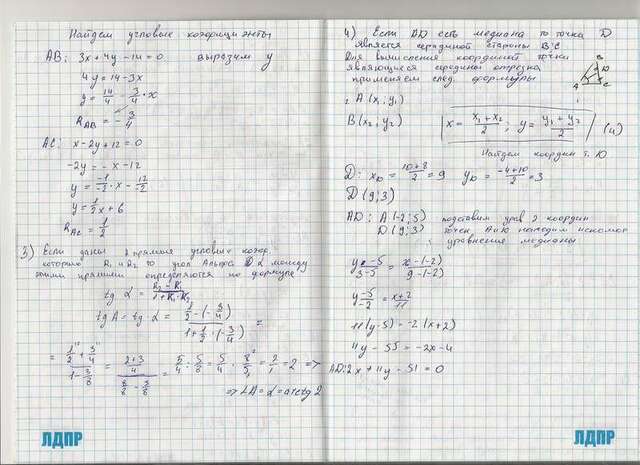 Найдем угловые коэффициенты
AB: 3x + 4y - 14 = 0 выразим y
4y = 14 - 3x
y = 14/4 - 3/4 · x
K_AB = - 3/4
AC: x - 2y + 12 = 0
-2y = -x - 12
y = -1/-2 · x - 12/-2
y = 1/2 x + 6
K_AC = 1/2
3) Если даны 2 прямые угловые коэф.
которых K₁ и K₂ то угол Альфа α между
этими прямыми определяются по формуле
tg α = K₂ - K₁ / 1 + K₁ · K₂
tg A = tg α = 1/2 - (-3/4) / 1 + 1/2 · (-3/4) =
= 1/2 + 3/4 / 1 - 3/8 = 2+3/4 / 8/8 - 3/8 = 5/4 : 5/8 = 5/4 · 8/5 = 2/1 = 2 =>
=> ∠A = α = arctg 2
ЛДПР
4) Если AD есть медиана то точка D
является серединой стороны BC
Для вычисления координат точки
являющиеся середины отрезка
применяем след. формулы
B
D
A
C
A (x₁ y₁)
B (x₂, y₂) x = x₁ + x₂ / 2 ; y = y₁ + y₂ / 2 (4)
Найдем координ т. D
D: x_D = 10+8 / 2 = 9 y_D = -4+10 / 2 = 3
D (9; 3)
AD: A (-2; 5) подставим урав 2 координ
D (9; 3) точек A и D находим
уравнения медианы
y - 5 / 3-5 = x - (-2) / 9 - (-2)
y-5 / -2 = x+2 / 11
11(y-5) = -2(x+2)
11y - 55 = -2x - 4
AD: 2x + 11y - 51 = 0
ЛДПР